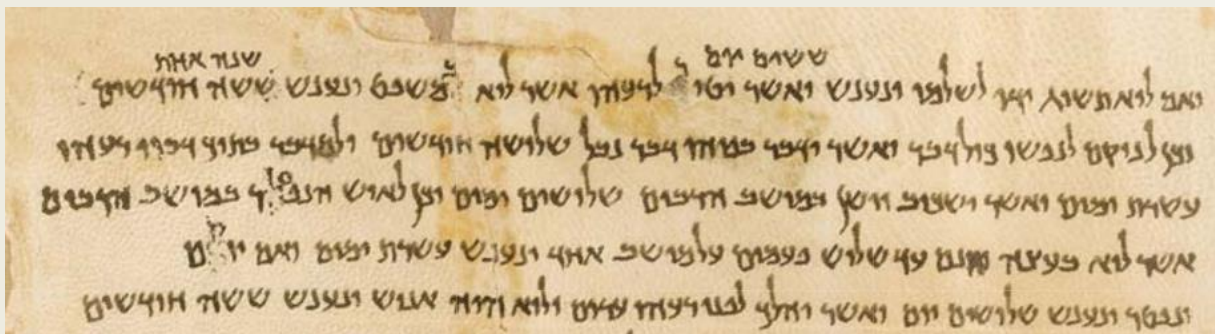 ששים יום שנה אחת
ואם לוא תשיג ידו לשלמו ונענש ואשר יטור לרעהו אשר לוא במשפט ונענש ששה חודשים
וכן לנוקם לנפשו כול דבר ואשר ידבר בפיהו דבר נבל שלושה חודשים ולמדבר בתוך דברי רעהו
עשרת ימים ואשר ישכוב וישן במושב הרבים שלושים ימים וכן לאיש הנפטר במושב הרבים
אשר לוא בעצה חנם עד שלוש פעמים על מושב אחד ונענש עשרת ימים ואם
ונפטר ונענש שלושים יום ואשר יהלך לפני רעהו ערום ולוא היה אנוש ונענש ששה חודשים